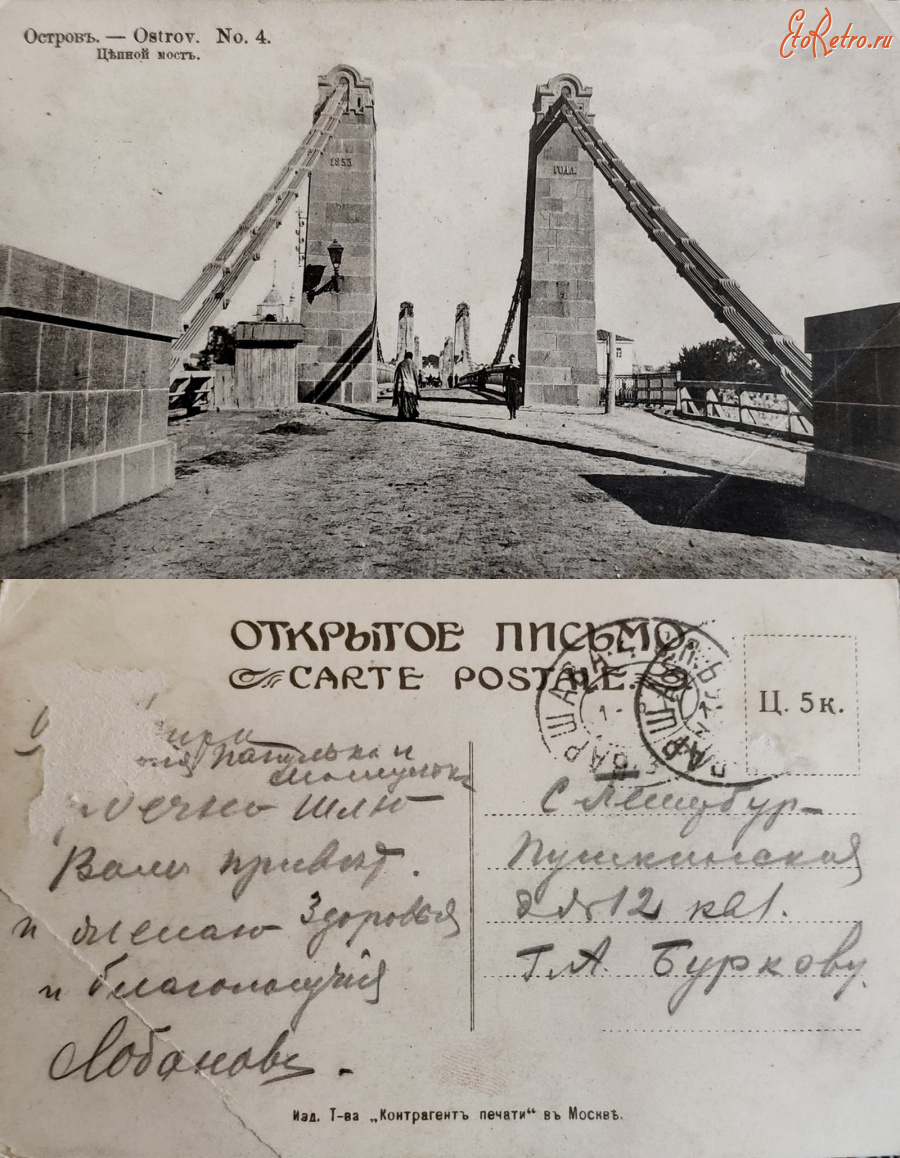 Островъ. — Ostrov. No. 4.
Цѣпной мостъ.
EtoRetro.ru
1853
ГОДА
ОТКРЫТОЕ ПИСЬМО
CARTE POSTALE.
Ц. 5 к.
шлю
Вамъ привѣт.
и желаю здоровья
и благополучія
Лобановъ.
С Петербур-
Пушкинская
д № 12 кв 1.
Г. А. Буркову.
Изд. Т-ва „Контрагентъ печати“ въ Москвѣ.